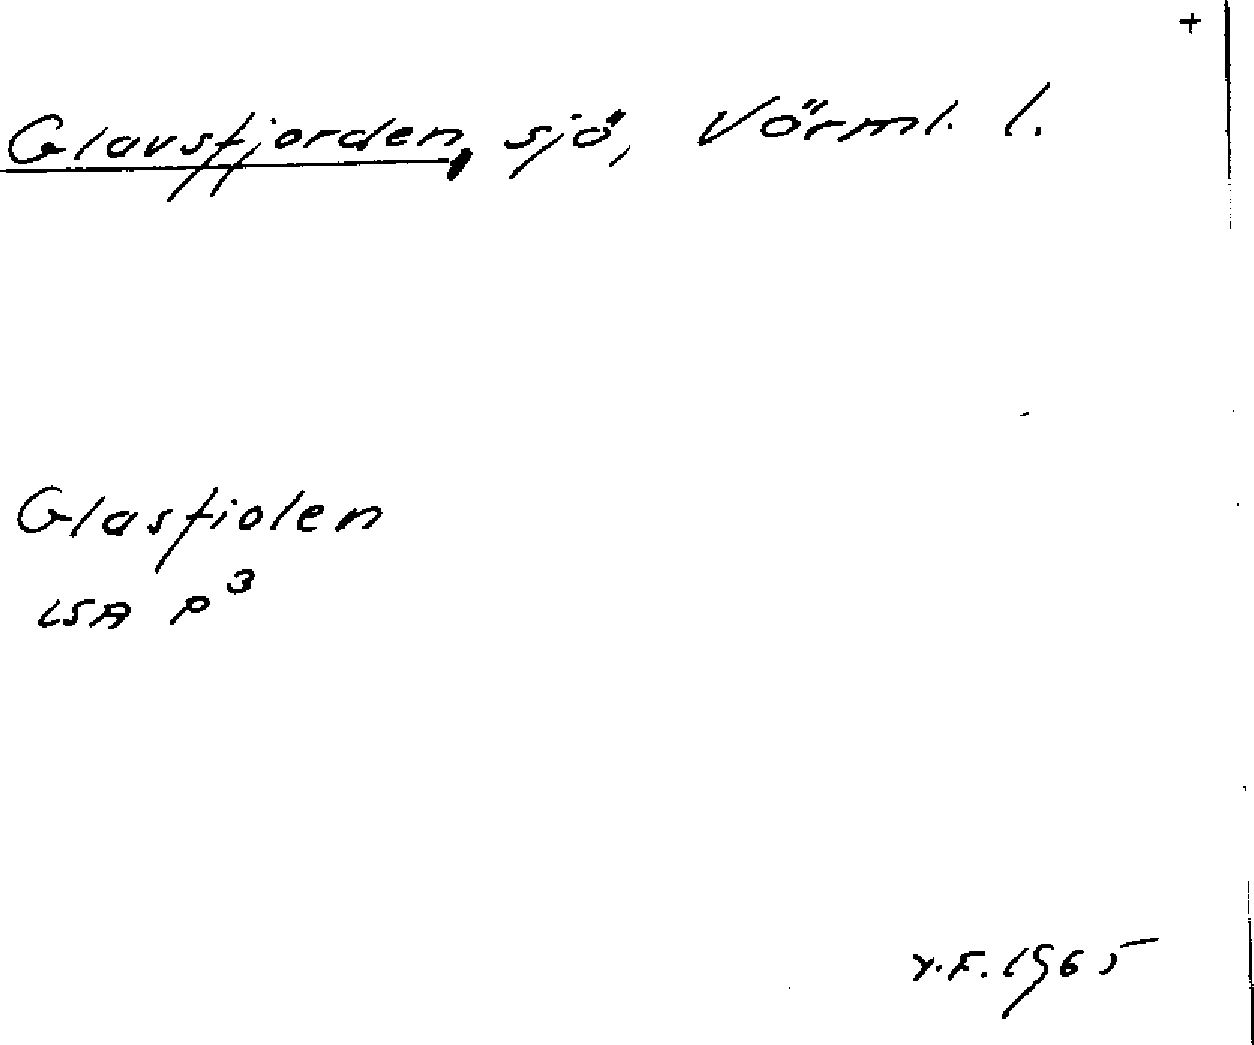 +
Glavsfjorden, sjö, Värml. l.
Glasfiolen
LSA P3
Y.F. 1965